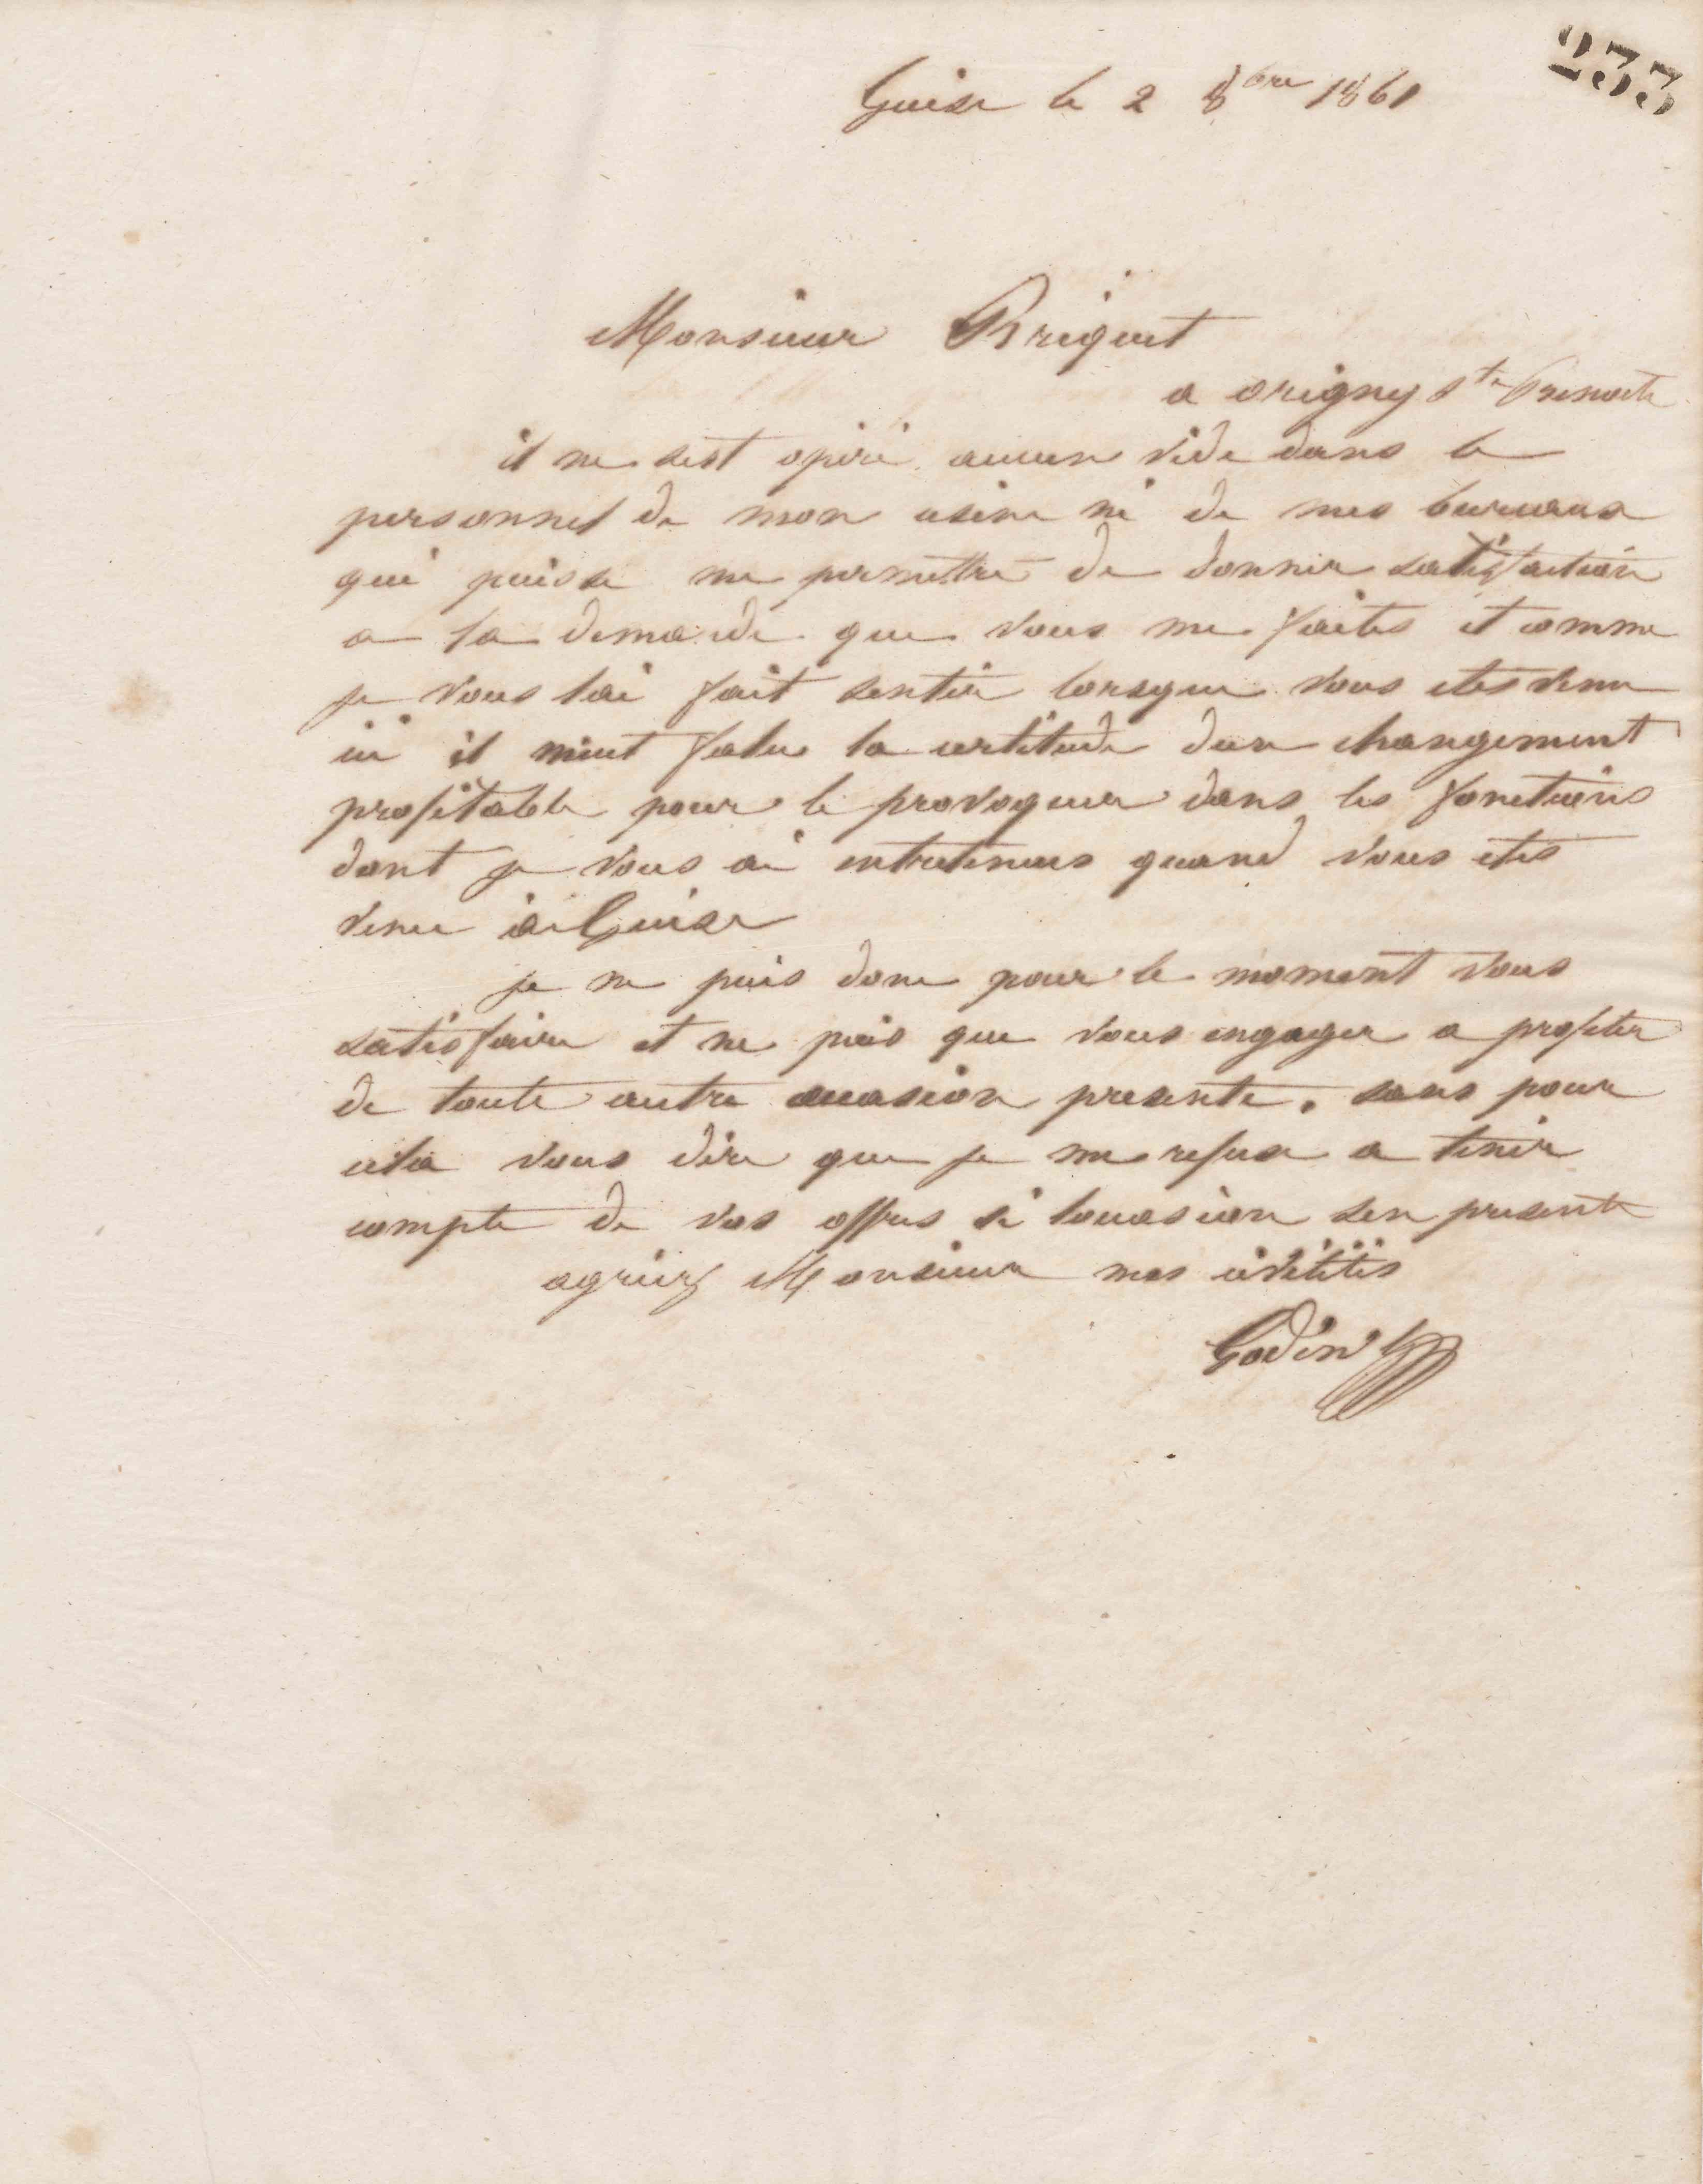 233
Guise le 2 8bre 1861
Monsieur Briquet
a origny Ste Benoite
il ne sest opéré aucun vide dans le
personnel de mon usine ni de mes bureaux
qui puisse me permettre de donner satisfaction
a la demande que vous me faites et comme
je vous lai fait sentir lorsque vous etes venu
ici il meut falu la certitude dun changement
profitable pour le provoquer dans les fonctions
dont je vous ai entretenus quand vous etes
venu à Guise
je ne puis donc pour le moment vous
satisfaire et ne puis que vous engager a profiter
de toute autre occasion presente. sans pour
cela vous dire que je me refuse a tenir
compte de vos offres si loccasion sen presente
agréez Monsieur mes civilités
Godin